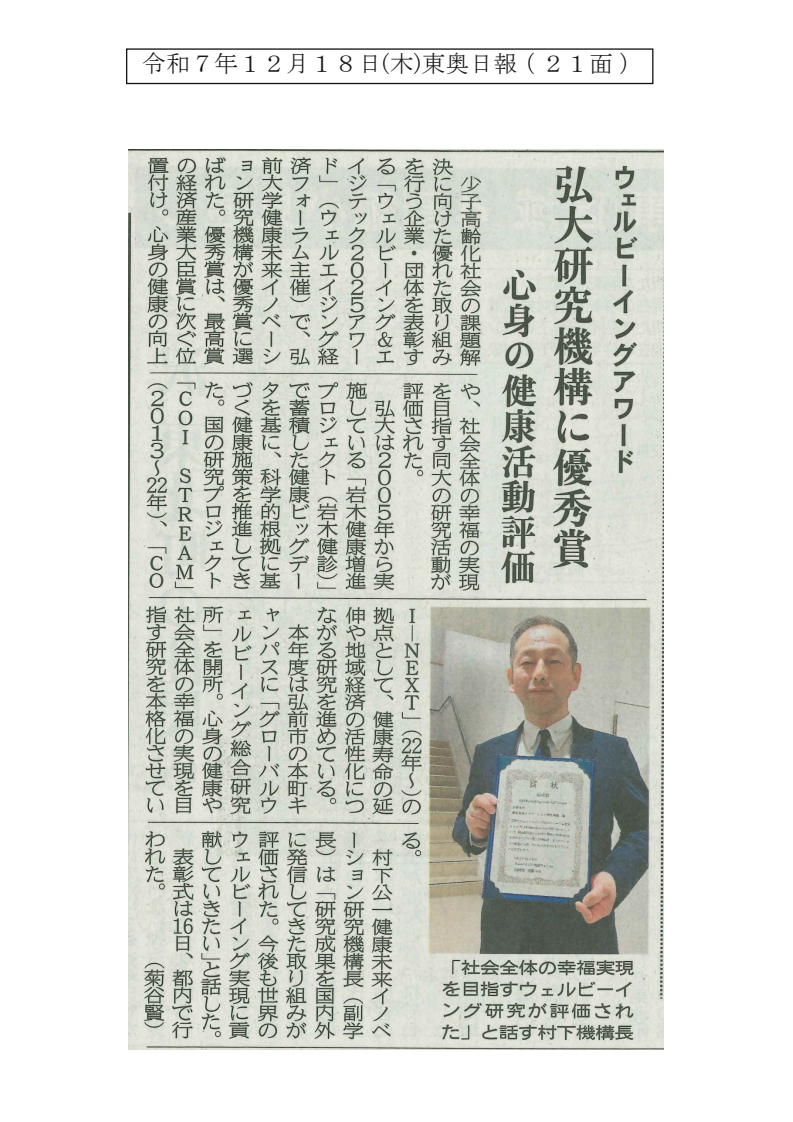 令和７年１２月１８日(木)東奥日報（２１面）
ウェルビーイングアワード
弘大研究機構に優秀賞
心身の健康活動評価
少子高齢化社会の課題解
決に向けた優れた取り組み
を行う企業・団体を表彰す
る「ウェルビーイング＆エ
イジテック2025アワー
ド」（ウェルエイジング経
済フォーラム主催）で、弘
前大学健康未来イノベーシ
ョン研究機構が優秀賞に選
ばれた。優秀賞は、最高賞
の経済産業大臣賞に次ぐ位
置付け。心身の健康の向上
や、社会全体の幸福の実現
を目指す同大の研究活動が
評価された。
弘大は2005年から実
施している「岩木健康増進
プロジェクト（岩木健診）」
で蓄積した健康ビッグデー
タを基に、科学的根拠に基
づく健康施策を推進してき
た。国の研究プロジェクト
「COI STREAM」
（2013〜22年）、「CO
I―NEXT」（22年〜）の
拠点として、健康寿命の延
伸や地域経済の活性化につ
ながる研究を進めている。
本年度は弘前市の本町キ
ャンパスに「グローバルウ
ェルビーイング総合研究
所」を開所。心身の健康や
社会全体の幸福の実現を目
指す研究を本格化させてい
る。
村下公一健康未来イノベ
ーション研究機構長（副学
長）は「研究成果を国内外
に発信してきた取り組みが
評価された。今後も世界の
ウェルビーイング実現に貢
献していきたい」と話した。
表彰式は16日、都内で行
われた。（菊谷賢）
賞状
「社会全体の幸福実現
を目指すウェルビーイ
ング研究が評価され
た」と話す村下機構長